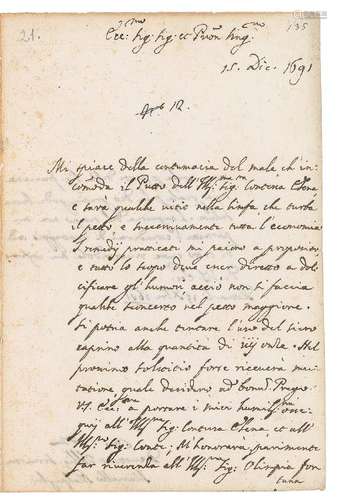 21.
135
Ecc.mo Sig: Sig: et Pron Sing.mo
15. Dic. 1691
12.
Mi spiace della contumacia del male ch'in
comoda il Putto dell'Ill.ma Sig: Contessa Elena
e sarà qualche vitio nella linfa che turba
il petto, e successivamente tutta l'economia
I remedij pratticati mi paiono a proposito
e tutto lo scopo deve esser diretto a dol
cificare gl'humori acciò non si faccia
qualche sconcerto nel petto maggiore.
Si potria anche tentare l'uso del siero
caprino alla quantità di iiij onze. Nel
prossimo solstitio forse riceverà mu
tatione quale desidero ad bonum. Prego
V.S. Ecc.ma a portare i miei humiliss.mi osse
quij all'Ill.ma Sig: Contessa Elena et all'
Ill.mo Sig: Conte. Mi honorarà parimente
far riverenza all'Ill.ma Sig: Olimpia For
tuna